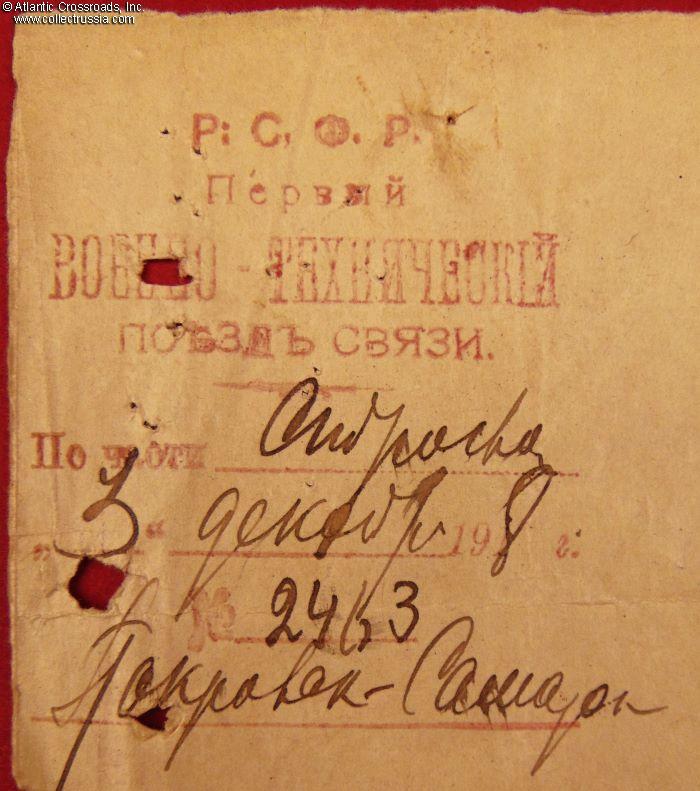 © Atlantic Crossroads, Inc.
www.collectrussia.com
Р. С. Ф. Р.
Первый
ВОЕННО-ТЕХНИЧЕСКІЙ
ПОѢЗДЪ СВЯЗИ.
По части
„3“ декабря 1918 г.
№ 2463
Покровск-Самары